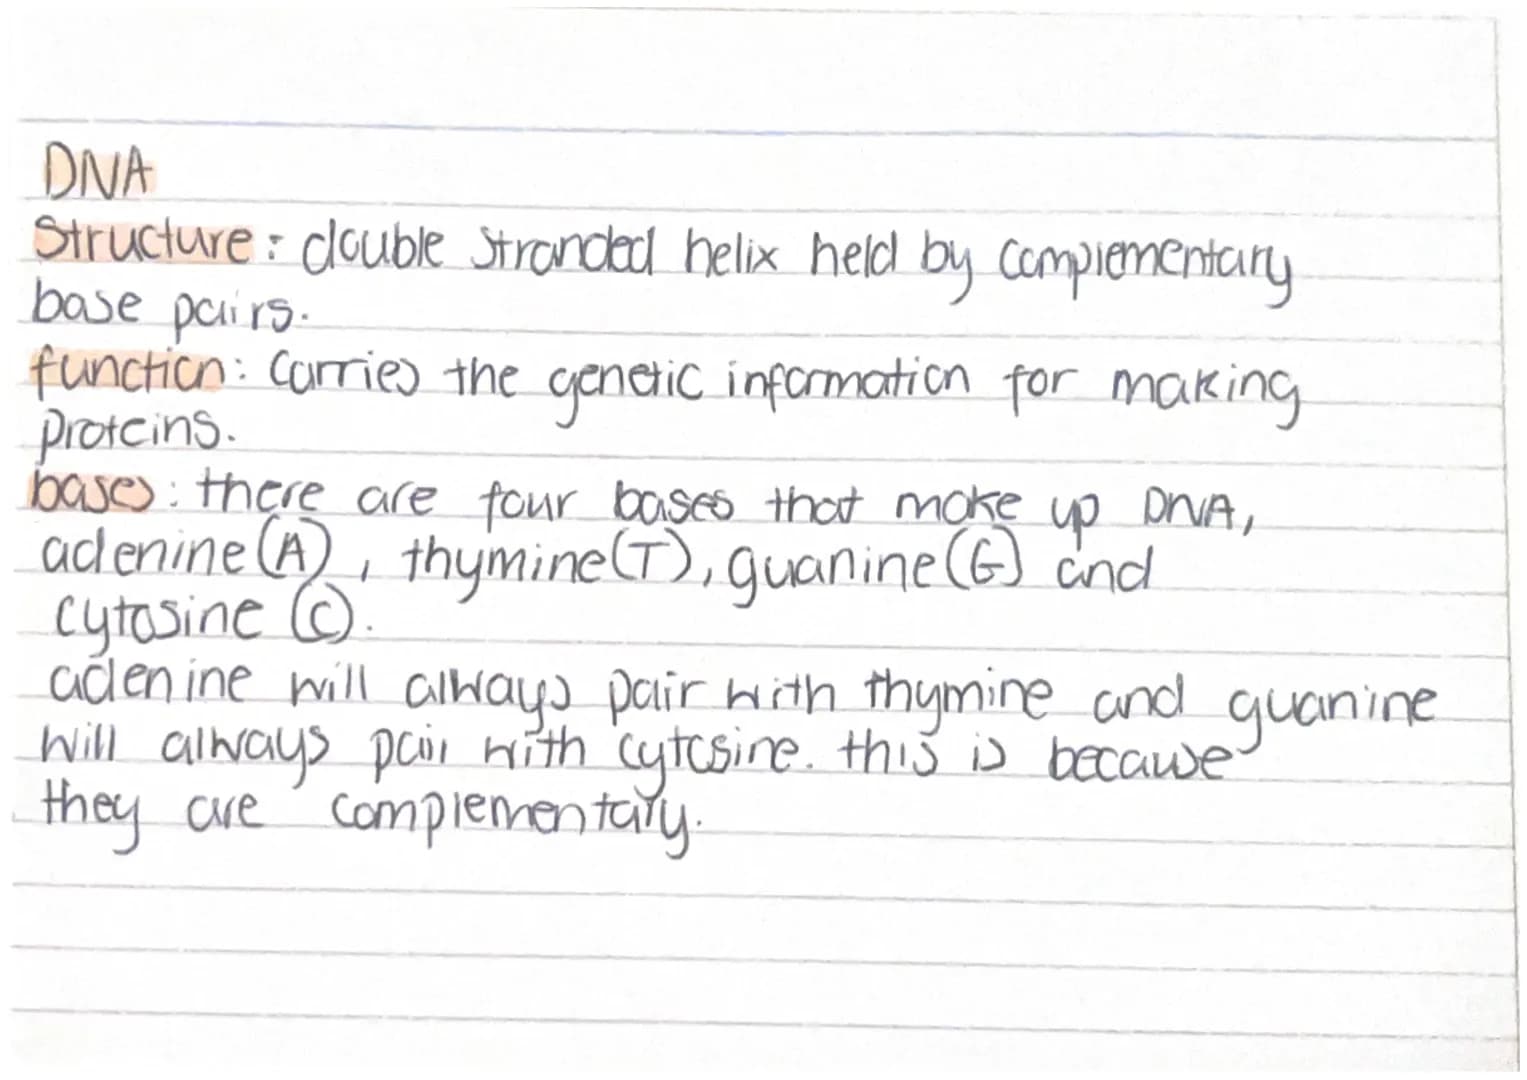 DNA
Structure: double stranded helix held by complementary
base pairs.
function: Carries the genetic information for making
proteins.
bases: there are four bases that make up DNA,
adenine (A), thymine (T), guanine (G) and
cytosine (C).
adenine will always pair with thymine and guanine
will always pair with cytosine. this is because
they are complementary.